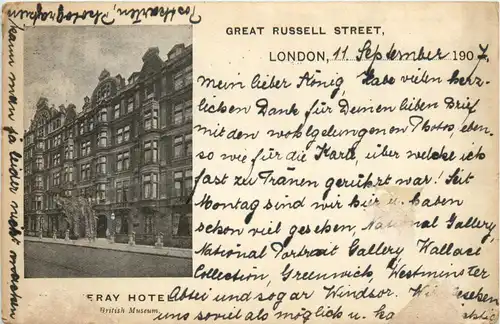 Postkarten, Photografien
kann man ja leider nicht machen
GREAT RUSSELL STREET,
LONDON, 11 September 1907.
Mein lieber König, Habe vielen herz-
lichen Dank für Deinen lieben Brief
mit den wohlgelungenen Photos, eben-
so wie für die Karte, über welche ich
fast zu Tränen gerührt war! Seit
Montag sind wir hier u. haben
schon viel gesehen, National Gallery
National Portrait Gallery, Wallace
Collection, Greenwich, Westminster
Abtei und sogar Windsor. Wir besehen
uns soviel als möglich u.
ERAY HOTE
British Museum.